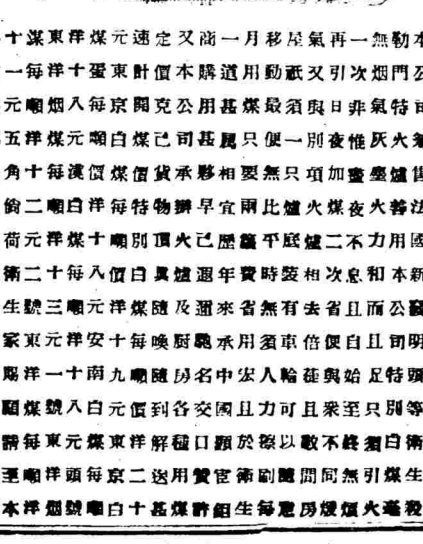 本公司無　法國新發明頭等白煤殺
勒門特火爐善用本公司特別衛生毫
無烟氣灰塵火力和而且足只須引火
一次非惟蜜夜不息且自始至終無煩
再引日夜加煤二次省便與衆不同煖
氣又與別項火爐相去倍蓰且敵間房
屋祇須一只爐庭裝有車輪可以隨意
移動最便無比平時無須人力擦刷每
月用煤只要兩籮費省用宏且於衛生
一道甚屬相宜歷年來承中國顯宦紳
商購用甚夥早已迴邇馳名交口贊許
又本公司承辦火爐及厨房各種用煤
定價克已貨物頂真隨喚隨到解送甚
速計開煤價特別白煤每噸價洋二十
元東京白煤每噸價洋十九元東京白
煤蛋每噸價洋十八元安南白煤每噸
洋十八元漢白煤每噸洋十八元頭號
東洋烟煤每噸洋十三元一號東洋烟
煤每噸洋十二元二號東洋煤每噸洋
十一元五角倘荷衛生家賜顧請至本